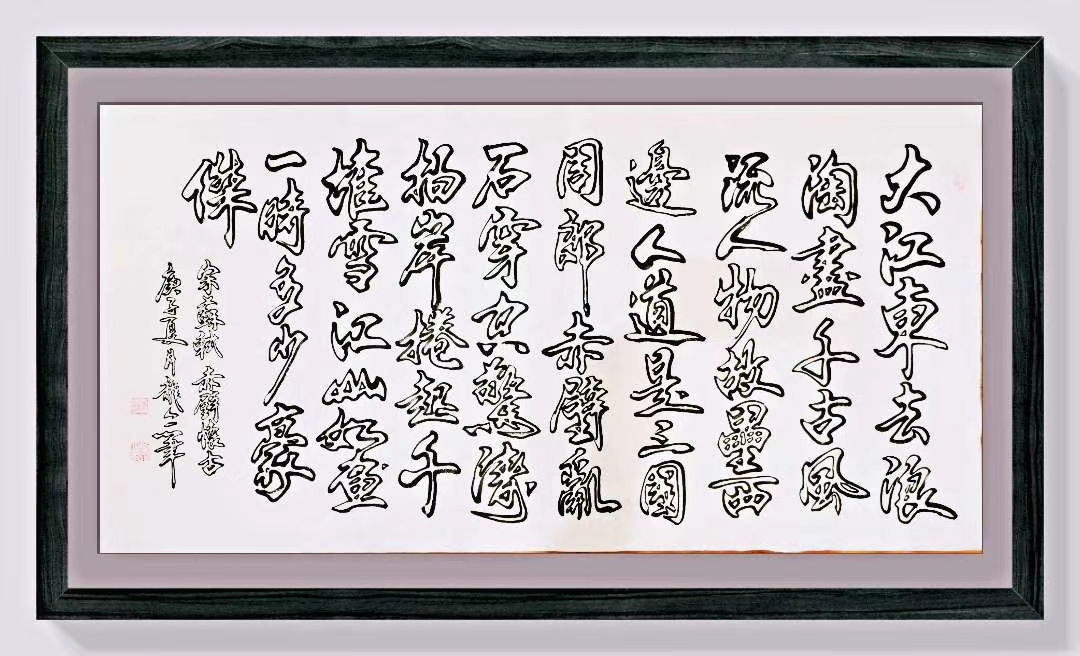 大江東去浪
淘盡千古風
流人物故壘西
邊人道是三國
周郎赤壁亂
石穿空驚濤
拍岸捲起千
堆雪江山如畫
一時多少豪
傑
宋蘇軾赤壁懷古
庚子夏月